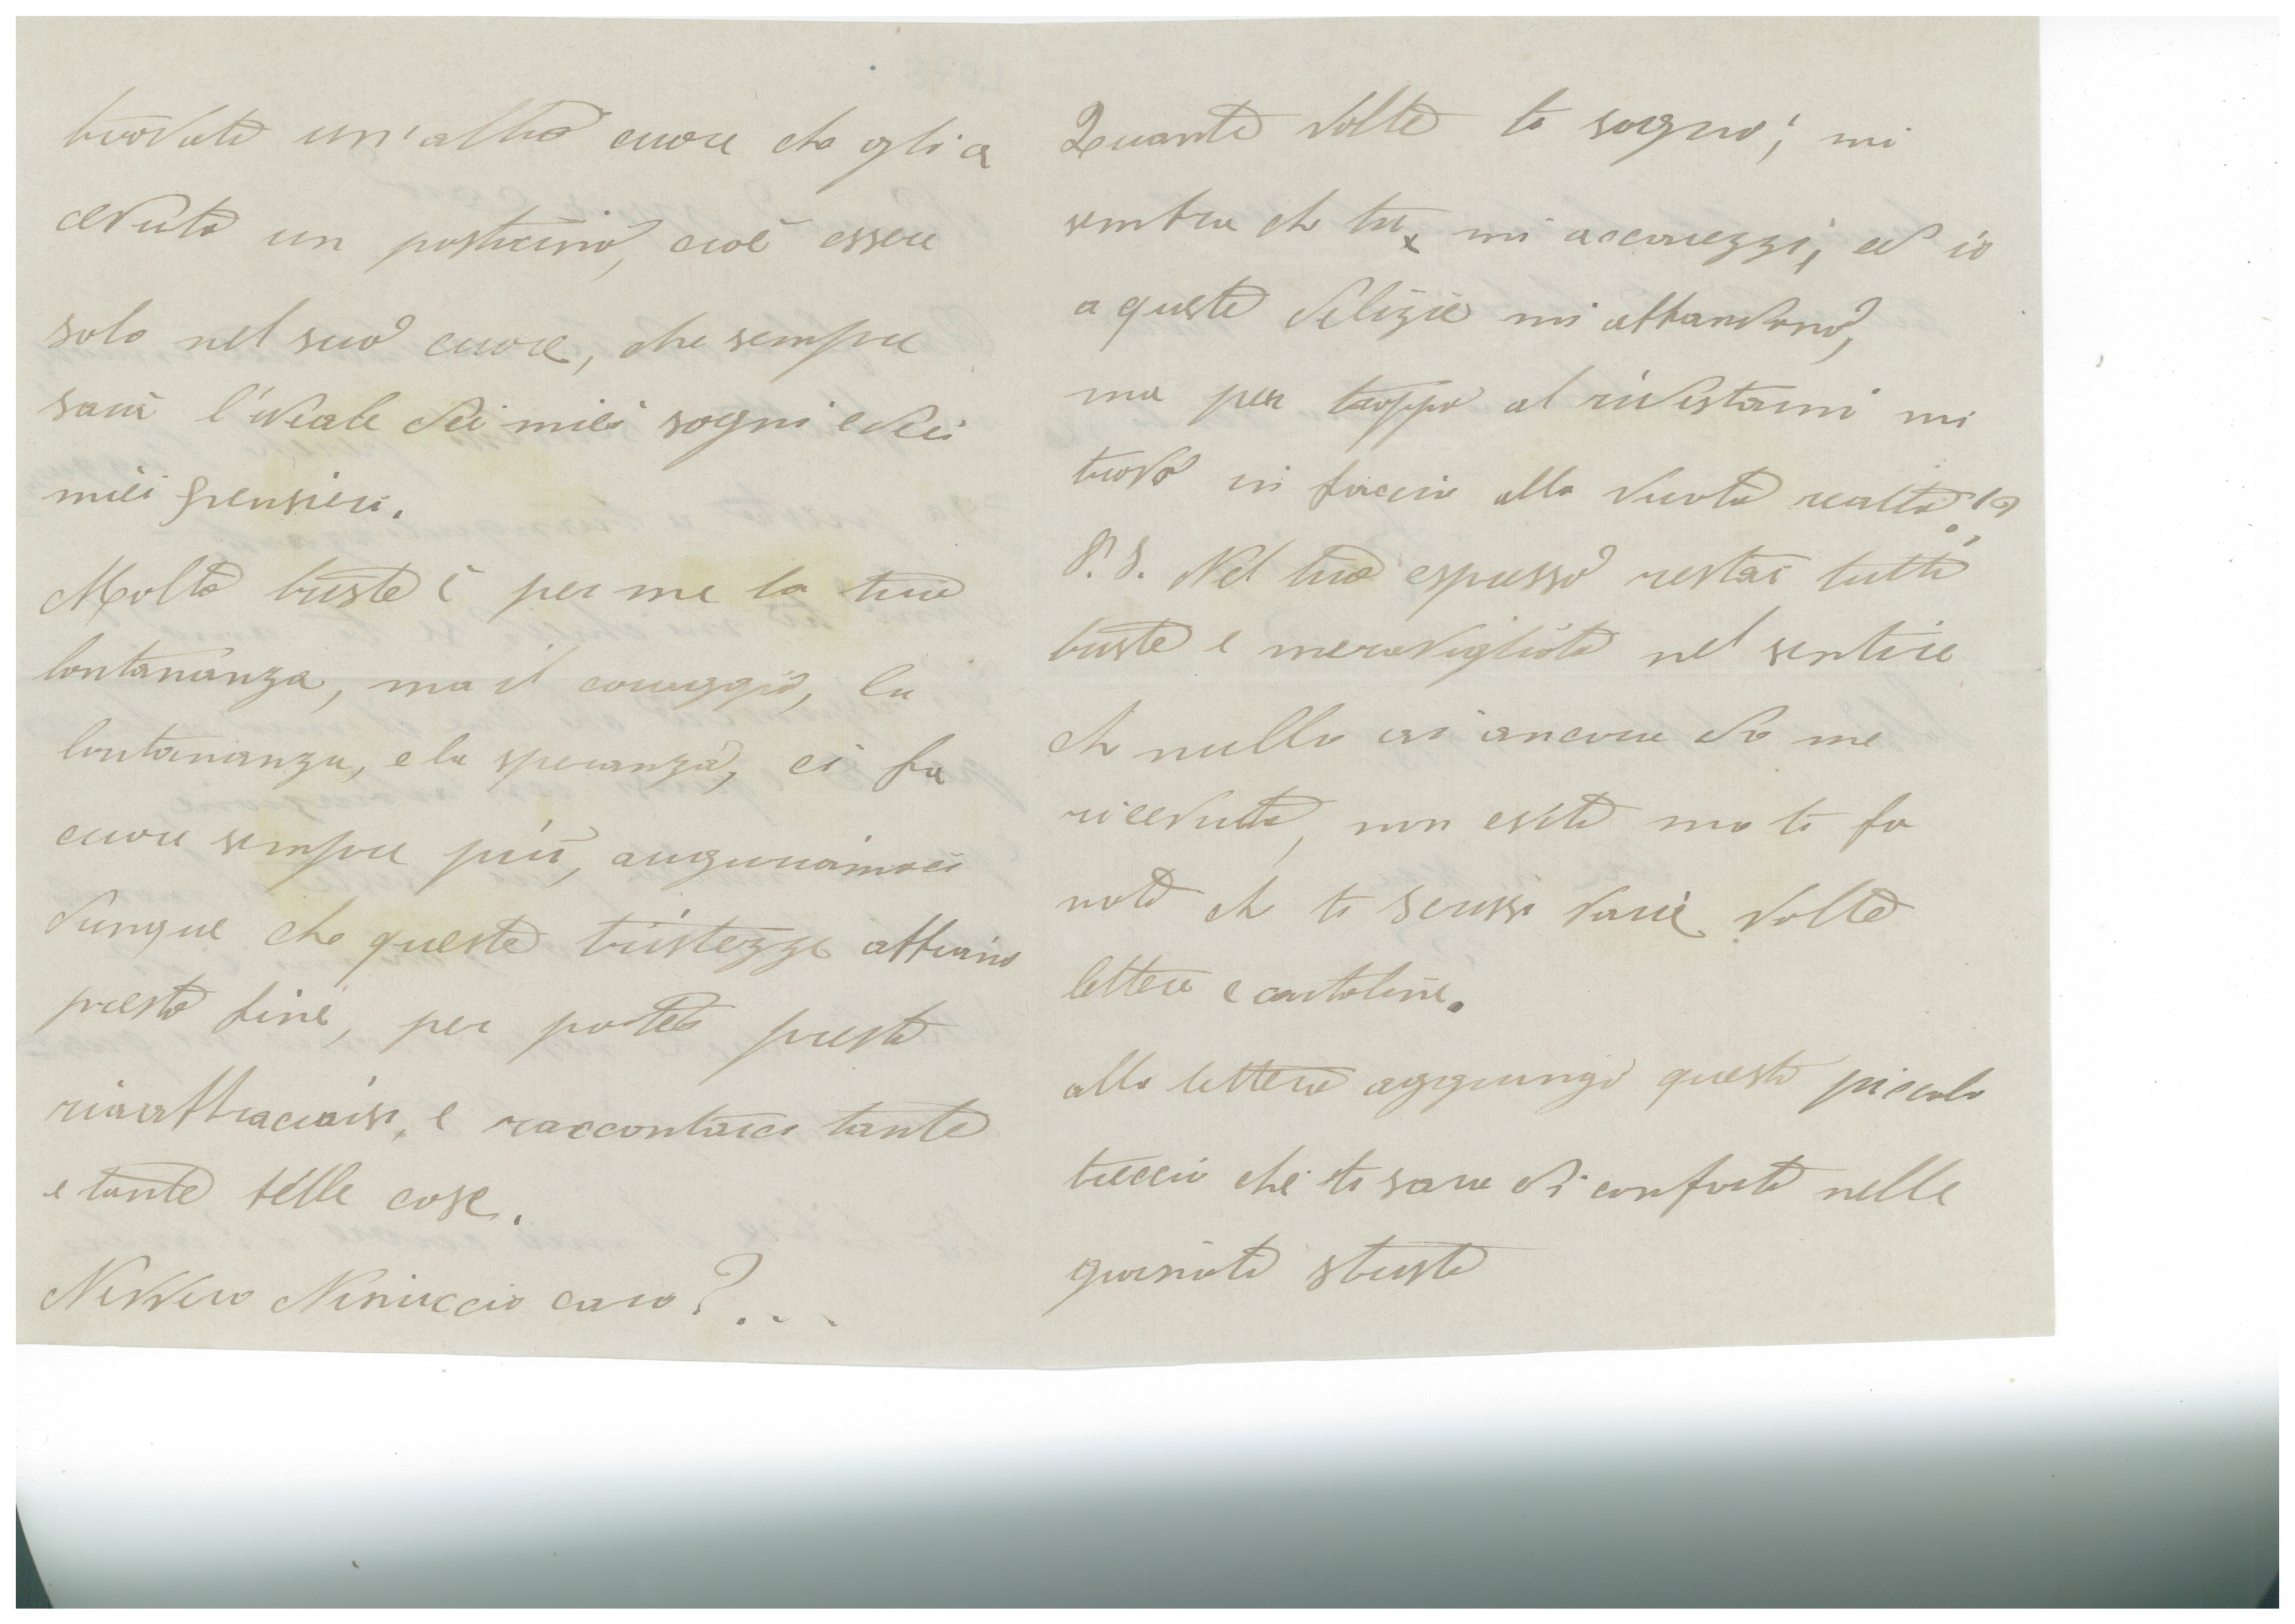 trovato un'altro cuore che gli a
ceduto un posticino, cioè essere
solo nel suo cuore, che sempre
sarà l'ideale dei miei sogni e dei
miei pensieri.
Molto triste è per me la tua
lontananza, ma il coraggio, la
lontananza, e la speranza, ci fa
cuore sempre più, auguriamoci
dunque che queste tristezze abbiano
presto fine, per poter presto
riabbracciarsi, e raccontarci tante
e tante belle cose.
Nevvero Ninuccio caro?...
Quante volte ti sogno; mi
sembra che tu mi accarezzi, ed io
a queste delizie mi abbandono,
ma per troppo al ridestarmi mi
trovo in faccia alla vuota realtà!?
P.S. Nel tuo espresso restai tutta
triste e meravigliata nel sentire
che nulla ai ancora da me
ricevuto, non esito ma ti fo
noto che ti scrissi varie volte
lettere e cartoline.
alla lettera aggiungo questo piccolo
treccia che ti sara di conforto nelle
giornate